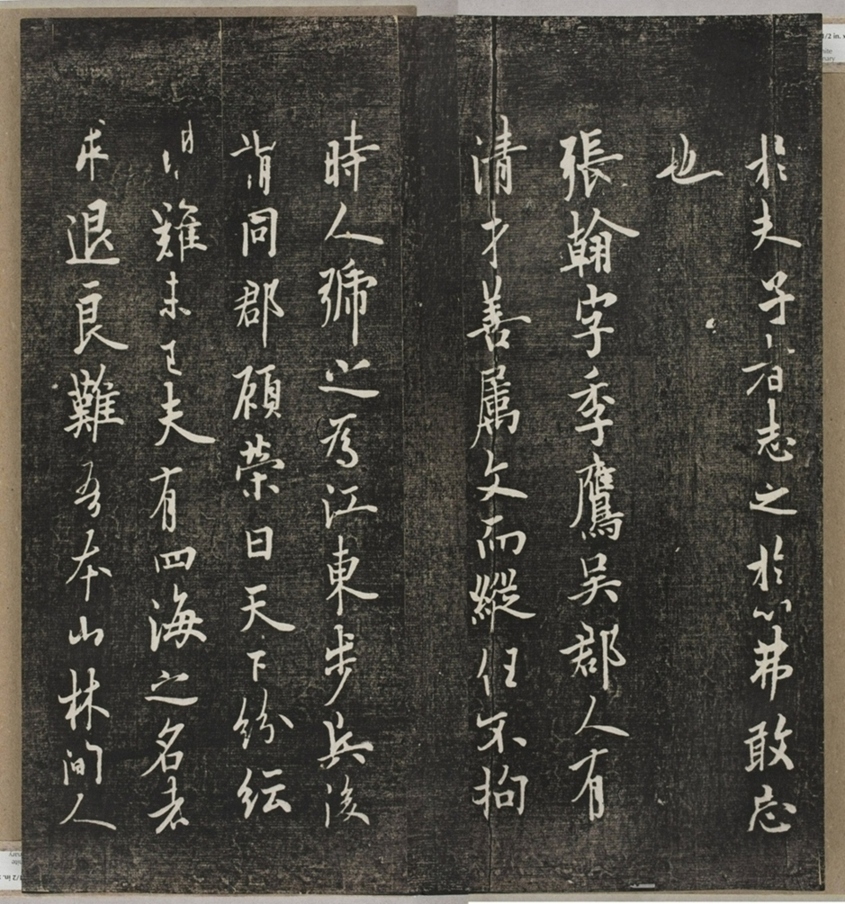 於夫子者志之於心弗敢忘
也
張翰字季鷹吴郡人有
清才善属文而縱任不拘
時人號之為江東步兵後
謂同郡顾榮曰天下紛紜
禍難未已夫有四海之名者
求退良難吾本山林間人